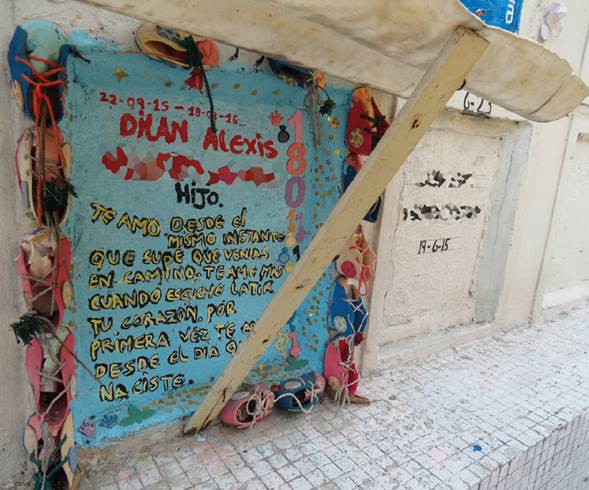 22-09-15 - 18-03-16
DILAN Alexis
Hijo.
TE AMO DESDE El
MISMO INSTANTE
QUE SUPE QUE VENIAS
EN CAMINO. TEAME MAS
CUANDO ESCUCHE LATIR
TU CORAZÓN. POR
PRIMERA VEZ TE
DESDE El DIA
NACISTE
19-6-15